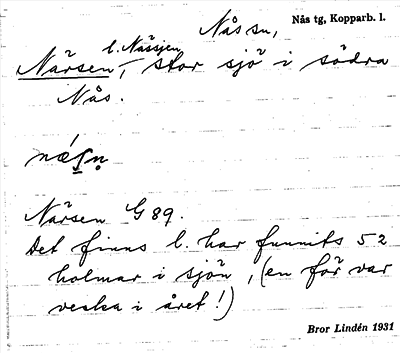 Nås sn, Nås tg, Kopparb. l.
l. Nässjen
Närsen, stor sjö i södra
Nås.
Närsen G 89.
Det finns l. har funnits 52
holmar i sjön, (en för var
vecka i året!)
Bror Lindén 1931